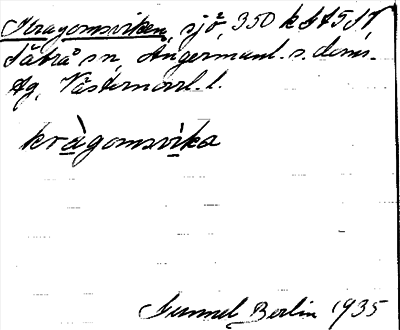 Kragomsviken, sjö, 350 k St 5 St,
Säbrå sn, Ångermanl. s. doms.
åg, Västernorrl. l.
kràgomsvika
Gunnel Berlin 1935